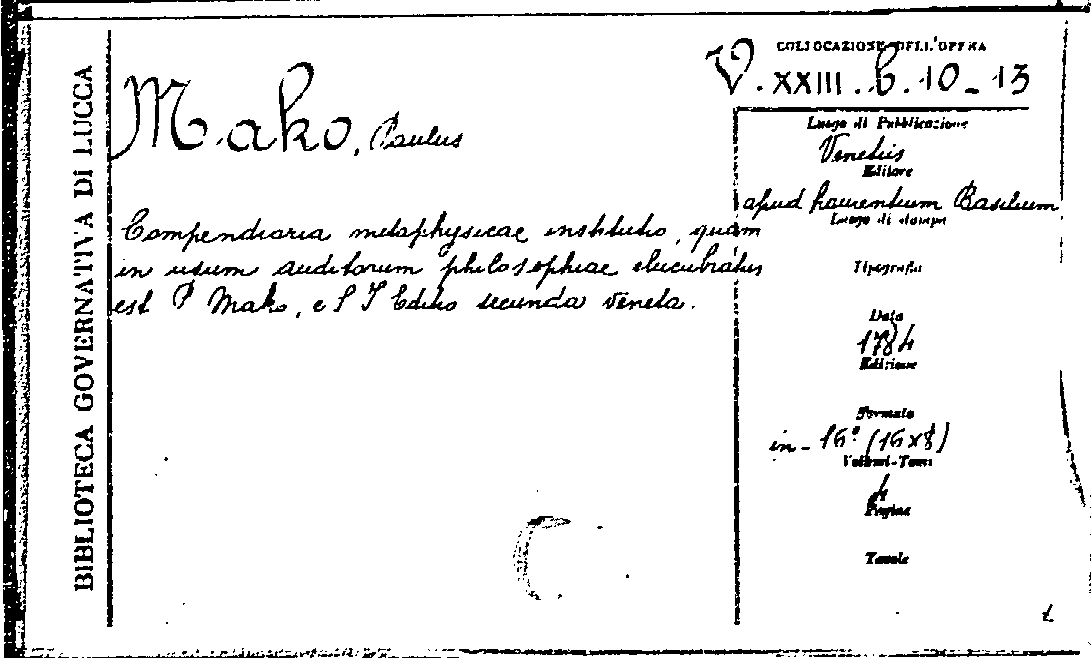 BIBLIOTECA GOVERNATIVA DI LUCCA
COLLOCAZIONE DELL'OPERA
V. XXIII. b. 10-13
Mako, Paulus
Compendiaria metaphysicae institutio, quam
in usum auditorum philosophiae elucubratus
est P Mako, e S I Editio secunda veneta.
Luogo di Pubblicazione
Venetiis
Editore
apud Laurentium Basilium
Luogo di stampa
Tipografia
Data
1784
Edizione
Formato
in-16° (16x8)
Volumi-Tomi
4
Pagine
Tavole